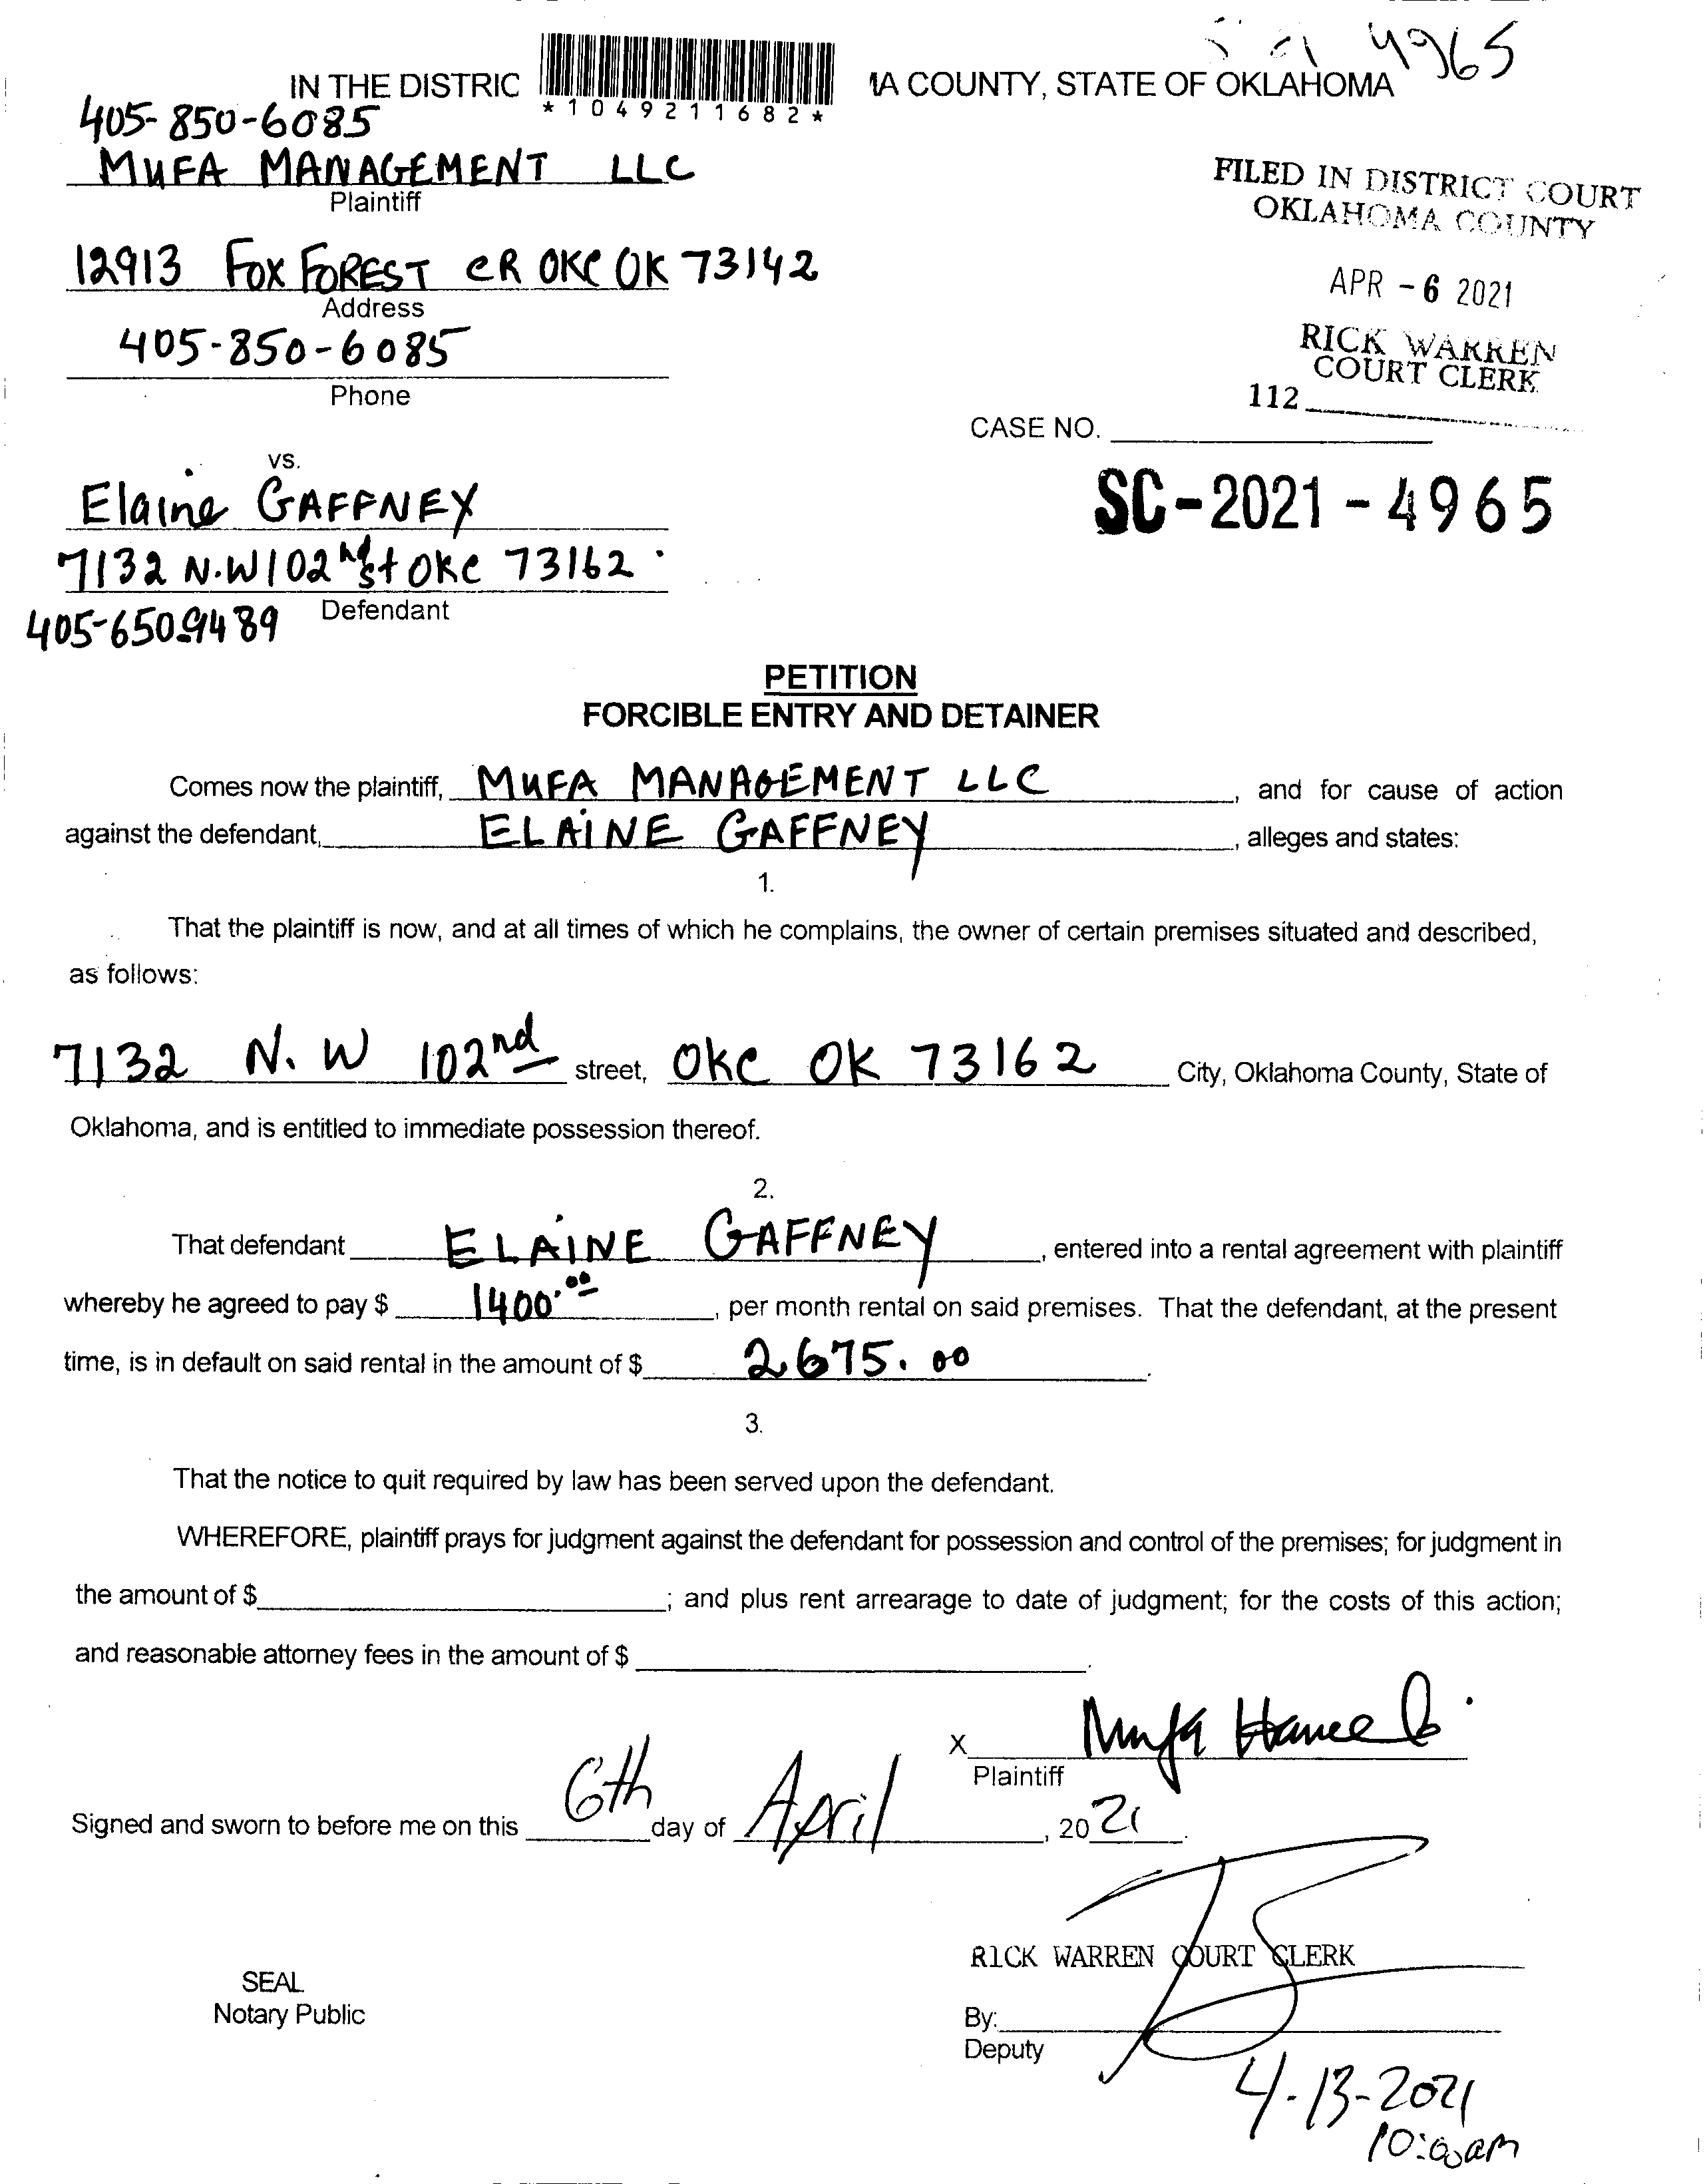 4965
IN THE DISTRIC
*1049211682*
MA COUNTY, STATE OF OKLAHOMA
405-850-6085
MUFA MANAGEMENT LLC
Plaintiff
FILED IN DISTRICT COURT
OKLAHOMA COUNTY
12913 FOX FOREST CR OKC OK 73142
Address
APR -6 2021
405-850-6085
Phone
RICK WARREN
COURT CLERK
112
CASE NO.
vs.
SC-2021-4965
Elaine GAFFNEY
7132 N.W 102nd st OKC 73162
Defendant
405-650-9489
PETITION
FORCIBLE ENTRY AND DETAINER
Comes now the plaintiff, MUFA MANAGEMENT LLC, and for cause of action
against the defendant, ELAINE GAFFNEY, alleges and states:
1.
That the plaintiff is now, and at all times of which he complains, the owner of certain premises situated and described,
as follows:
7132 N. W 102nd street, OKC OK 73162 City, Oklahoma County, State of
Oklahoma, and is entitled to immediate possession thereof.
2.
That defendant ELAINE GAFFNEY, entered into a rental agreement with plaintiff
whereby he agreed to pay $ 1400.00, per month rental on said premises. That the defendant, at the present
time, is in default on said rental in the amount of $ 2675.00.
3.
That the notice to quit required by law has been served upon the defendant.
WHEREFORE, plaintiff prays for judgment against the defendant for possession and control of the premises; for judgment in
the amount of $; and plus rent arrearage to date of judgment; for the costs of this action;
and reasonable attorney fees in the amount of $.
X Mufa
Plaintiff
Signed and sworn to before me on this 6th day of April, 2021.
RICK WARREN COURT CLERK
SEAL
Notary Public
By:
Deputy
4-13-2021
10:00am